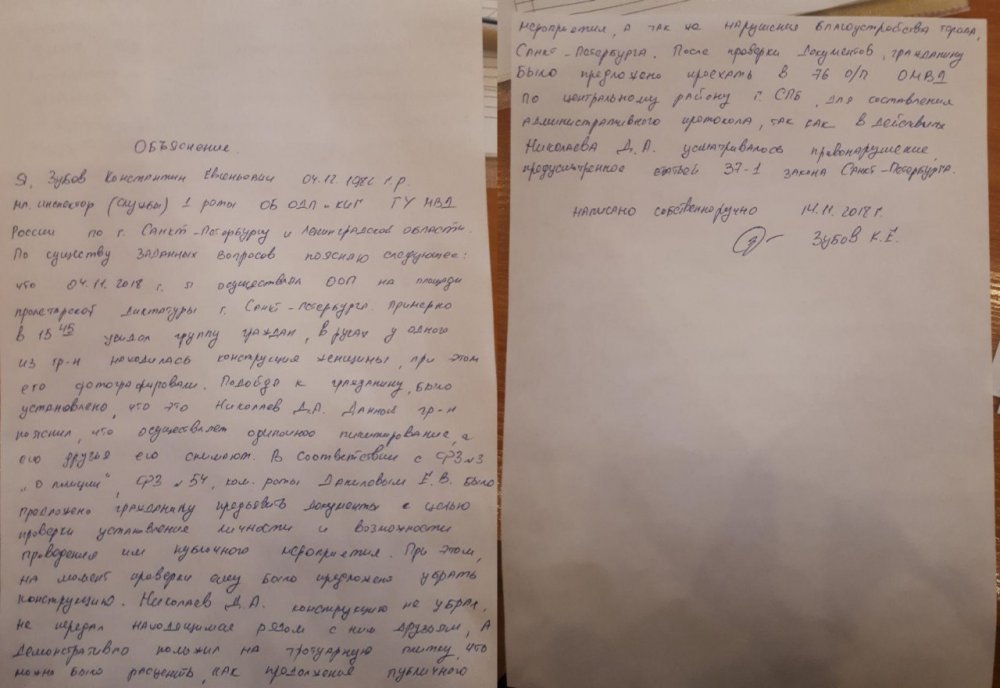 Объяснение.
Я, Зубов Константин Евгеньевич 04.12.1986 г.р.
мл. инспектор (службы) 1 роты ОБ ОДП и КМГ ГУ МВД
России по г. Санкт-Петербургу и Ленинградской области.
По существу заданных вопросов поясняю следующее:
что 04.11.2018 г. я осуществлял ООП на площади
пролетарской диктатуры г. Санкт-Петербурга. Примерно
в 15 45 увидел группу граждан, в руках у одного
из гр-н находилась конструкция женщины, при этом
его фотографировали. Подойдя к гражданину, было
установлено, что это Николаев Д.А. Данный гр-н
пояснил, что осуществляет одиночное пикетирование, а
его друзья его снимают. В соответствии с ФЗ №3
„О полиции", ФЗ №54, ком. роты Даниловым Е.В. было
предложено гражданину предъявить документы с целью
проверки установление личности и возможности
проведения им публичного мероприятия. При этом,
на момент проверки ему было предложено убрать
конструкцию. Николаев Д.А. конструкцию не убрал,
не передал находящимся рядом с ним друзьям, а
демонстративно положил на тротуарную плитку, что
можно было расценить, как продолжения публичного
мероприятия, а так же нарушения благоустройства города,
Санкт-Петербурга. После проверки документов, гражданину
было предложено проехать в 76 о/п ОМВД
по центральному району г. СПб, для составления
административного протокола, так как в действиях
Николаева Д.А. усматривалось правонарушение,
предусмотренное статьей 37-1 закона Санкт-Петербурга.
написано собственноручно 14.11.2018 г.
Зубов К.Е.